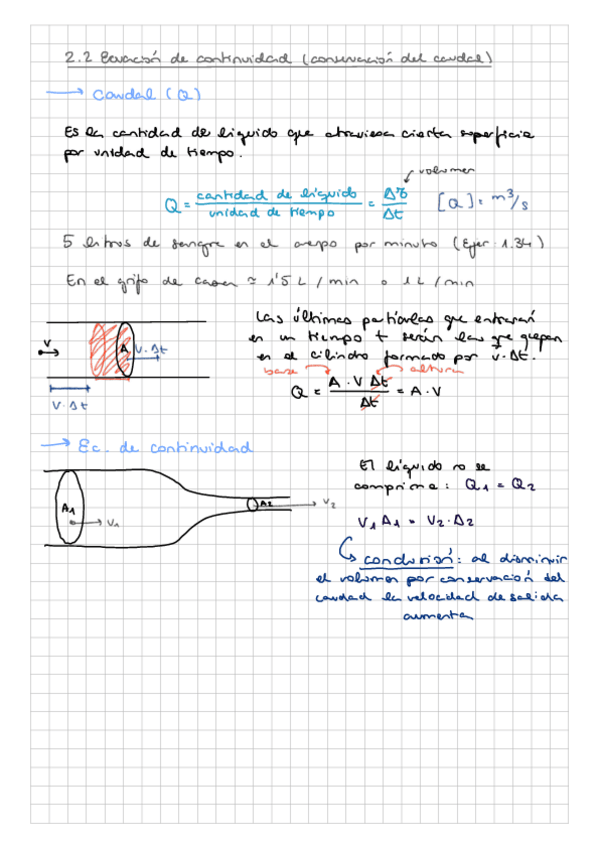 2.2 Ecuación de continuidad (conservación del caudal)
→ Caudal (Q)
Es la cantidad de líquido que atraviesa cierta superficie
por unidad de tiempo.
volumen
Q = cantidad de líquido / unidad de tiempo = Δv / Δt [Q] = m³/s
5 litros de sangre en el cuerpo por minuto (Ejer. 1.34)
En el grifo de casa ≈ 1'5 L / min o 1 L / min
Las últimas partículas que entrarán
en un tiempo t serán las que quepan
en el cilindro formado por v·Δt.
v A v·Δt
v·Δt
base altura
Q = A · V Δt / Δt = A · V
→ Ec. de continuidad
El líquido no se
comprime: Q1 = Q2
A1 v1 A2 v2
V1 A1 = V2 · A2
conclusión: al disminuir
el volumen por conservación del
caudal la velocidad de salida
aumenta